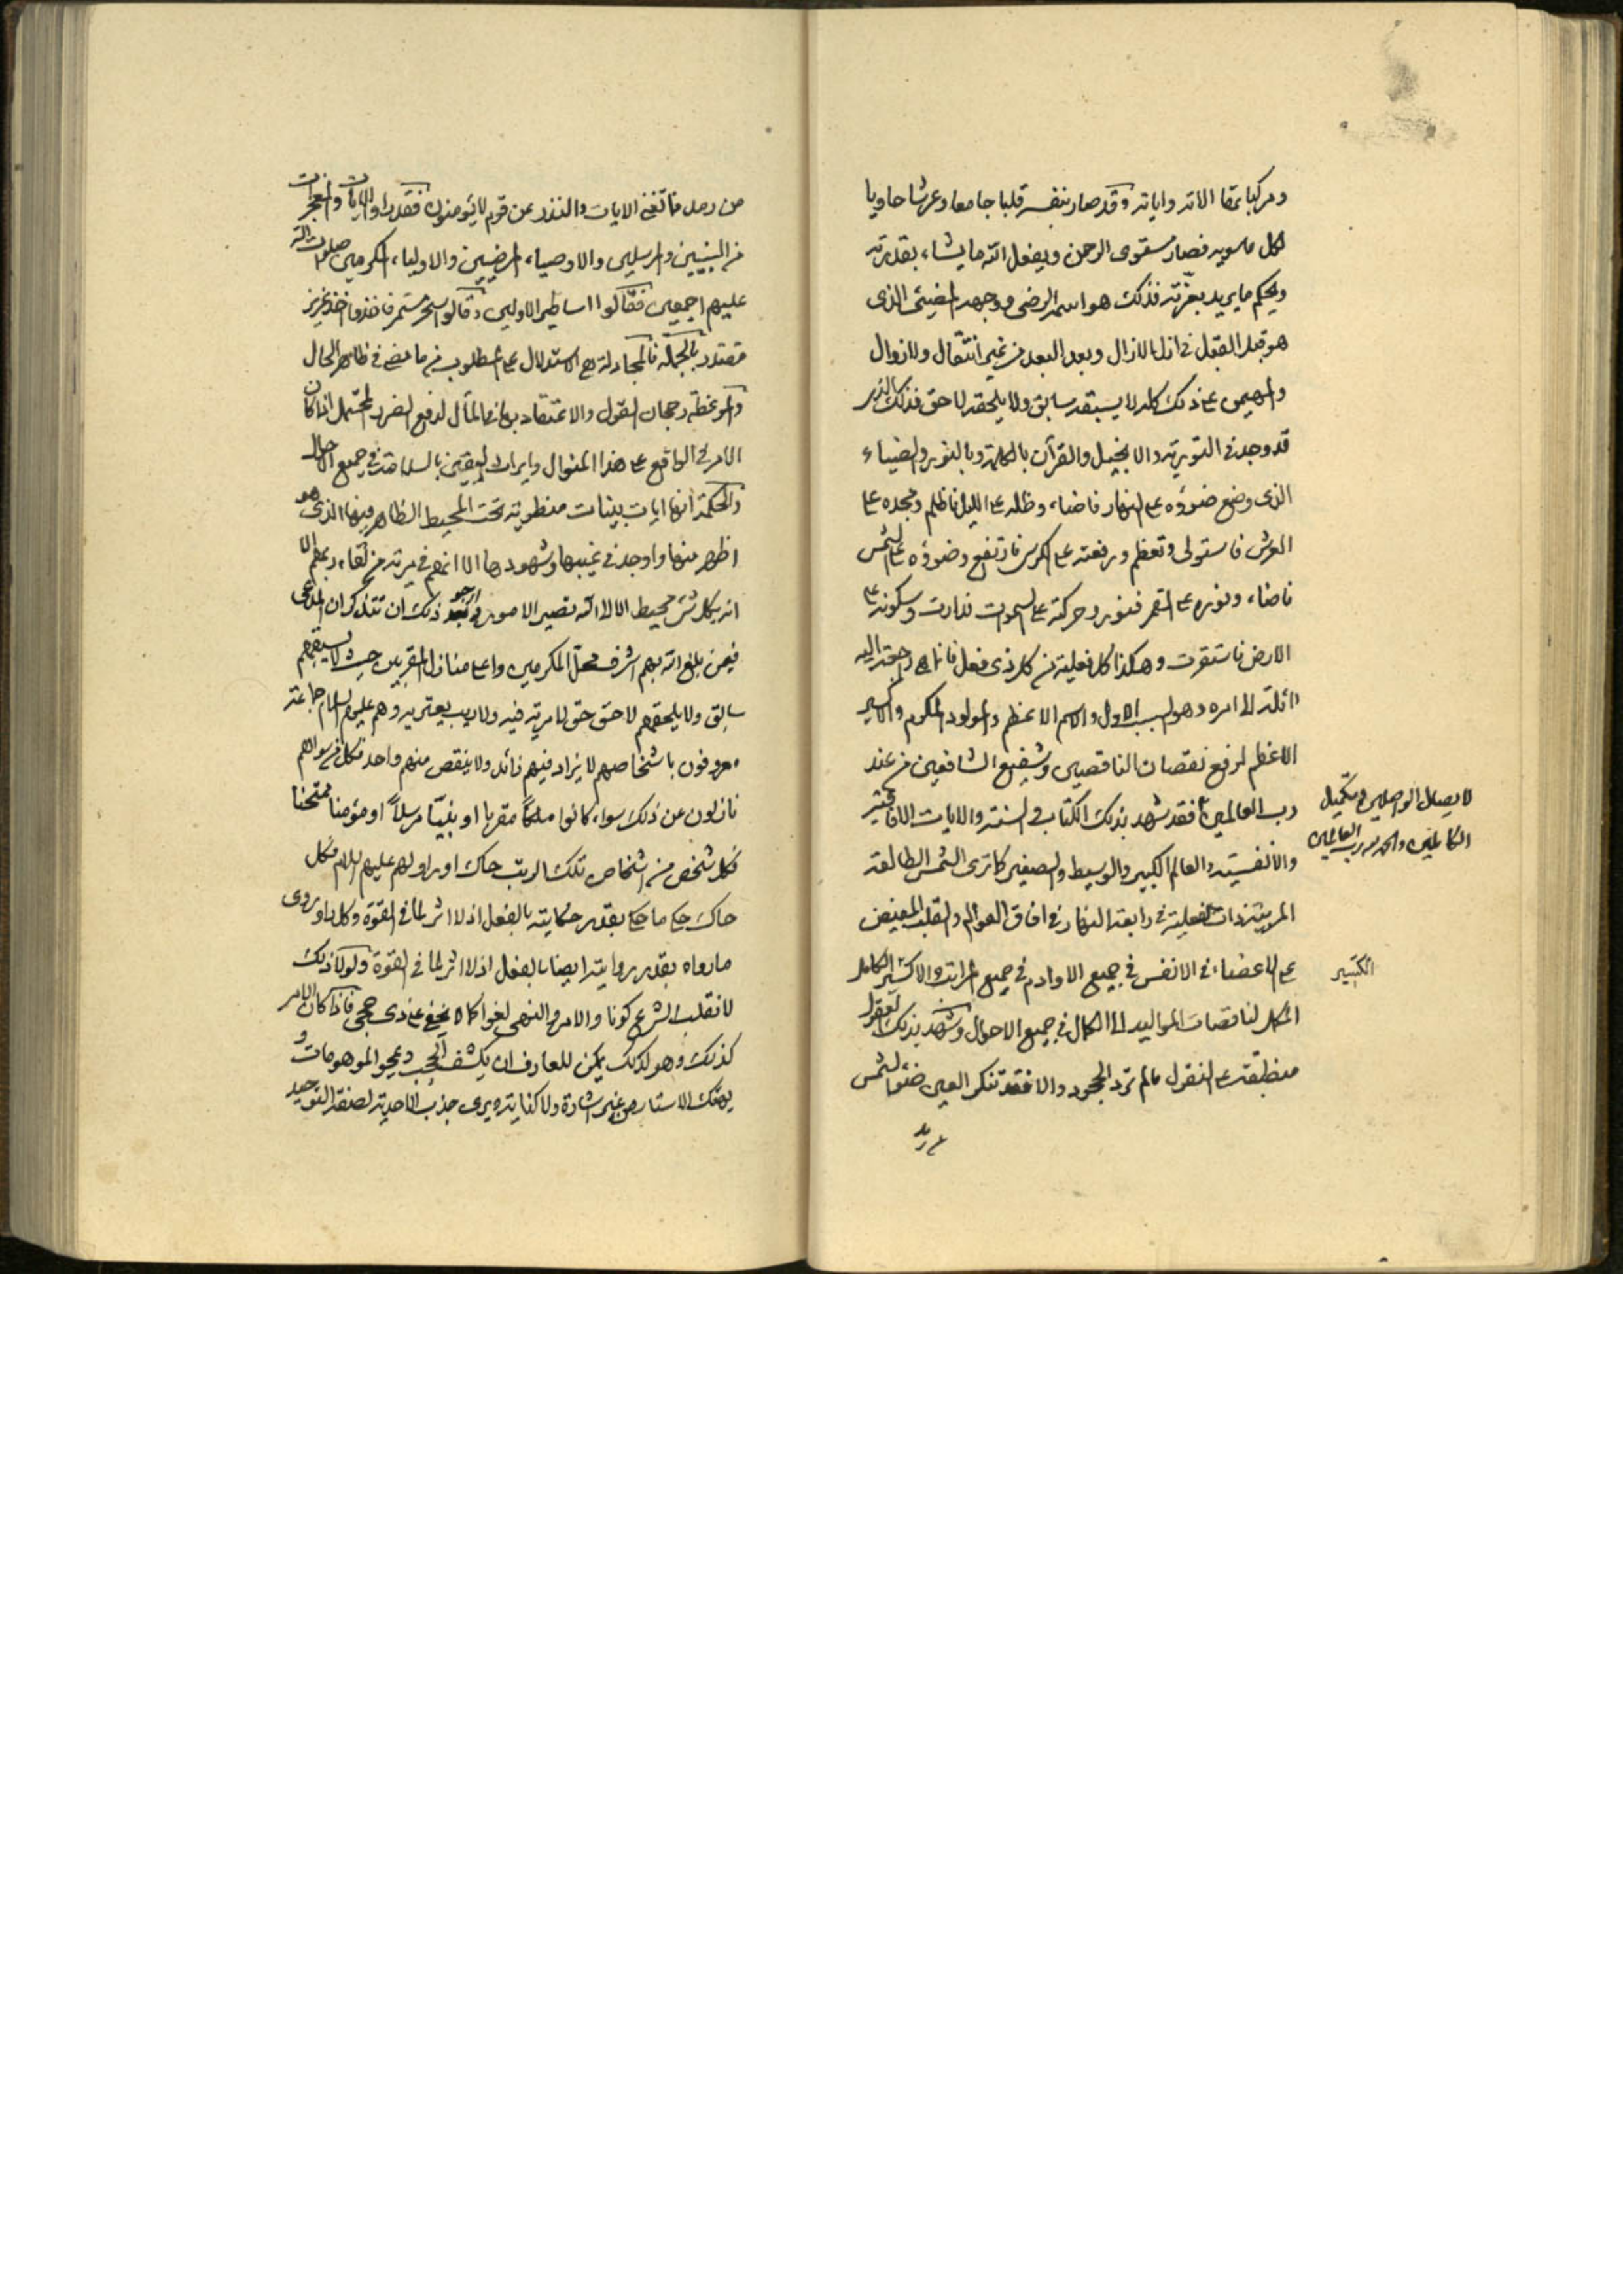 ومركبا بمقالاته واياته وقد صار بنفسه قلبا جامعا وعرشا حاويا
لكل ما سويه فصار مستوى الرحمن ويفعل الله ما يشاء بقدرته
ويحكم ما يريد بعزته فذلك هو اسمه الرضي ووجهه المضيئ الذى
هو قبل القبل فى ازل الازال وبعد البعد من غير انتقال ولا زوال
والمهيمن على ذلك كله لا يسبقه سابق ولا يلحقه لاحق فذلك الذى
قد وجد فى التورية والانجيل والقرآن بالكلمة وبالنور والضياء
الذى وضع ضوؤه على النهار فاضاء وظله على الليل فاظلم ومجده على
العرش فاستولى وتعظم ورفعته على الكرسى فارتفع وضوؤه على الشمس
فاضاء ونوره على القمر فنور وحركته على السموات فدارت وسكونه على
الارض فاستقرت وهكذا كل فعلية من كل ذى فعل فانها راجعة اليه
دائلة الى امره وهو السبب الاول والاسم الاعظم والمولود المكرم والاكسير
الاعظم لرفع نقصان الناقصين وشفيع الشافعين من عند
رب العالمين فقد شهد بذلك الكتاب والسنة والايات الافاقية
لايصال الواصلين وتكميل
الكاملين والحمد لله رب العالمين
والانفسية والعالم الكبير والوسيط والصغير كما ترى الشمس الطالعة
المربية ذات الفعلية فى رابعة النهار فى افاق العوالم والقلب المفيض
على الاعضاء فى الانفس فى جميع الاوادم فى جميع المراتب والاكسير الكامل
الكبير
المكمل لناقصات المواليد الى الكمال فى جميع الاحوال وشهد بذلك العقول
منطبقة على النقول مالم ترد الجحود والا فقد تنكر العين ضوء الشمس
من رمد فما تغنى الايات والنذر عن قوم لا يؤمنون فقد راوا الايات والمعجزات
من النبيين والمرسلين والاوصياء المرضيين والاولياء المكرمين صلوات الله
عليهم اجمعين فقالوا اساطير الاولين وقالوا سحر مستمر فاخذوا اخذ عزيز
مقتدر بالجملة فالمجادلة هى الاستدلال على المطلوب من ما مضى فى ظاهر الحال
والموعظة رجحان القول والاعتقاد به فى المآل لدفع الضرر المحتمل اذا كان
الامر فى الواقع على هذا المنوال وايراث اليقين بالسلامة فى جميع الاحوال
والحكمة انها ايات بينات منطوية تحت المحيط الظاهر فيها الذى هو
اظهر منها واوجد فى غيبها وشهودها الا انهم فى مرية من لقاء ربهم الا
انه بكل شئ محيط الا الى الله تصير الامور وارجو بعد ذلك ان تتذكر ان المدعى
فيمن بلغ الله بهم اشرف محل المكرمين واعلى منازل المقربين حيث لا يسبقهم
سابق ولا يلحقهم لاحق حق لا مرية فيه ولا ريب يعتريه وهم عليهم السلام جماعة
معروفون باشخاصهم لا يزاد فيهم زائد ولا ينقص منهم واحد فكل من سواهم
نازلون عن ذلك سواء كانوا ملكا مقربا او نبيا مرسلا او مؤمنا ممتحنا
فكل شخص من اشخاص تلك الرتب حاك او راو لهم عليهم السلام فكل
حاك حكى ما حكى بقدر حكايته بالفعل اذ لا اثر لما فى القوة وكل راو روى
ما رواه بقدر روايته ايضا بالفعل اذ لا اثر لما فى القوة ولولا ذلك
لانقلب الشرع كونا والامر والنهى لغوا كما لا يخفى على ذى حجى فاذا كان الامر
كذلك وهو لذلك يمكن للعارف ان يكشف الحجب ويمحو الموهومات و
يهتك الاستار من غير اشارة ولا كناية ويرى جذب الاحدية لصفة التوحيد